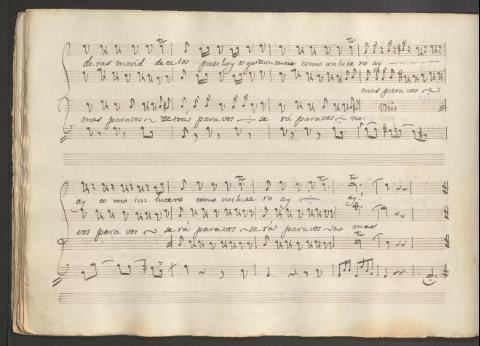 de ras morid de ce los pues hoy os quita un moio como un luce ro ay
mas para vos
mas para vos se rás para vos se rá para vos no
ay co mo un lucero como un luce ro ay ay
vos para vos se rá para vos se rá para vos no mas